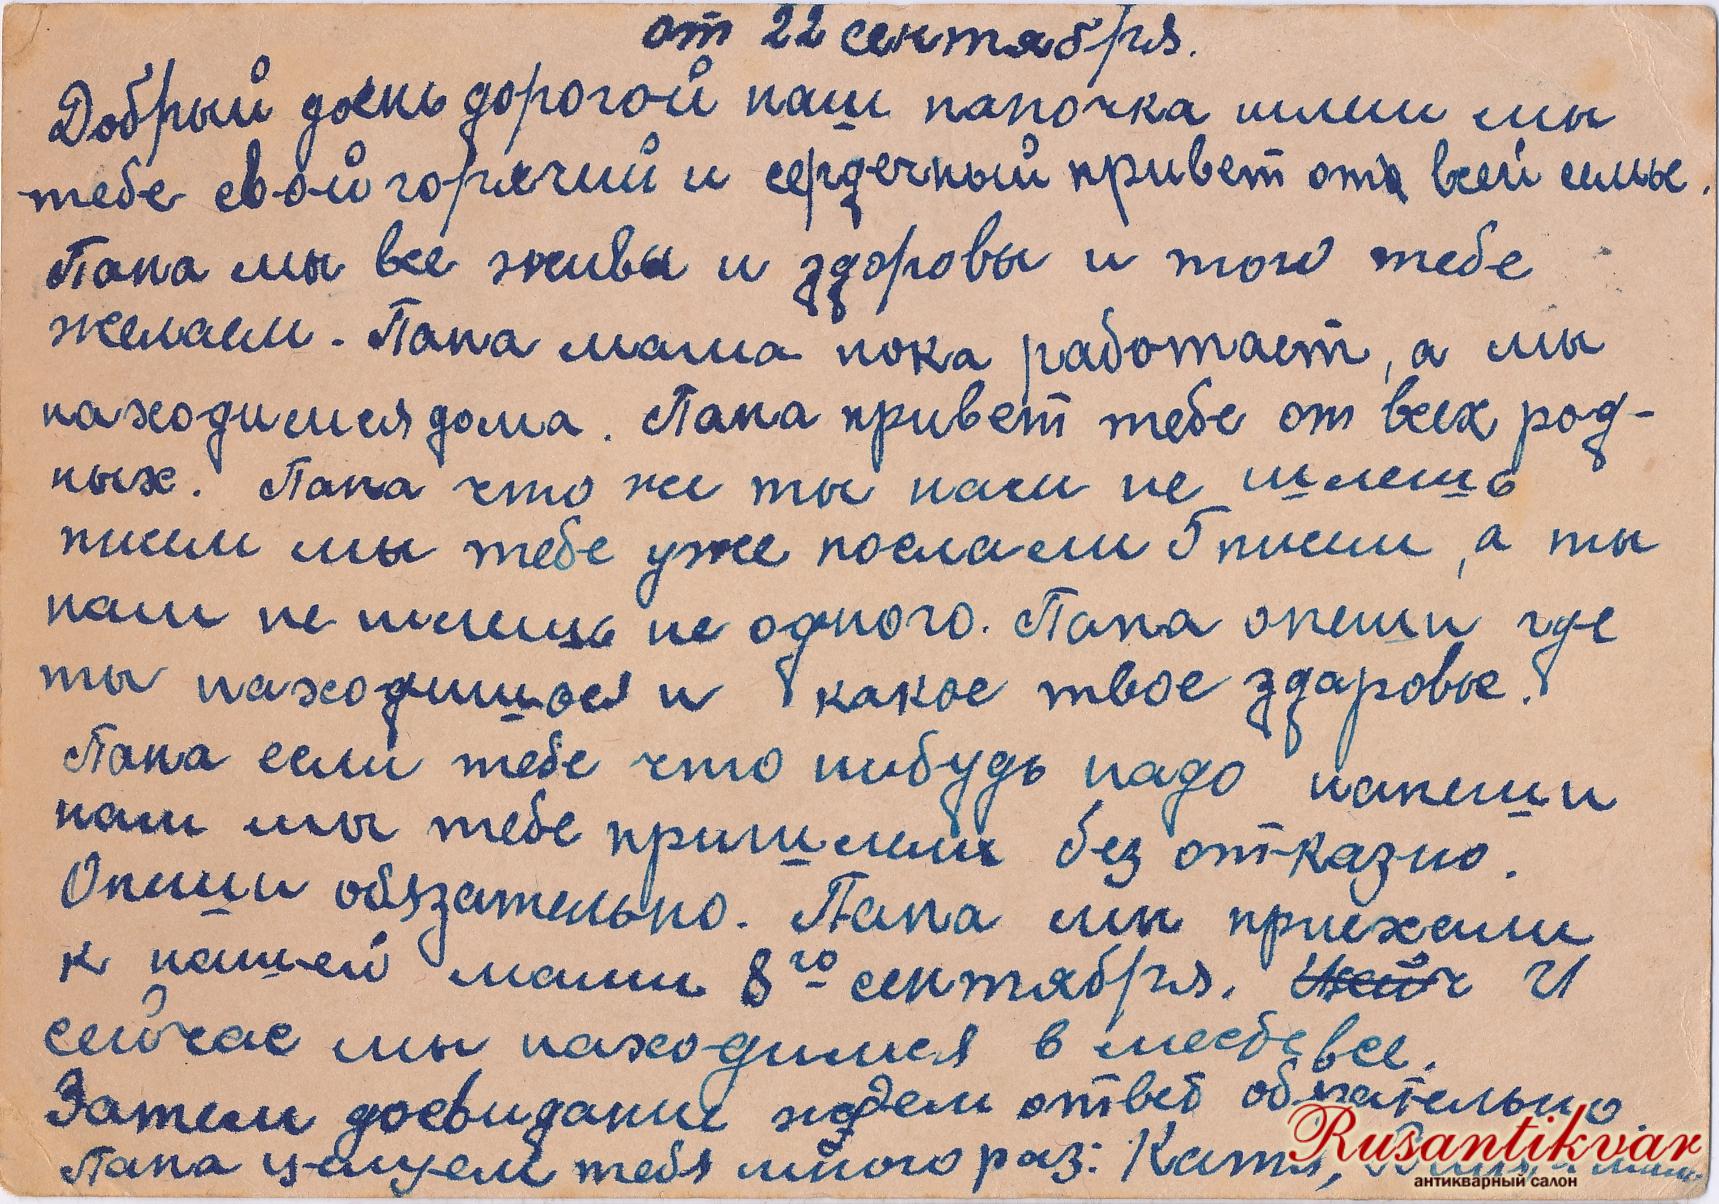 от 22 сентября.
Добрый доень дорогой наш папочка шлем мы
тебе свой горячий и сердечный привет от всей семье.
Папа мы все живы и здоровы и тою тебе
желаем. Папа мама пока работает, а мы
находимся дома. Папа привет тебе от всех род-
ных. Папа что же ты нам не шлешь
писем мы тебе уже послали 5 писем, а ты
нам не шлешь не одного. Папа опеши где
ты находишься и какое твое здаровье.
Папа если тебе что нибудь надо напеши
нам мы тебе пришлем без отказно.
Опеши обязательно. Папа мы приехали
к нашей мами 8го сентября. И
сейчас мы находимся в месбе все.
Затем досвидание ждем ответ обязательно
Папа целуем тебя много раз: Катя,
Rusantikvar
антикварный салон